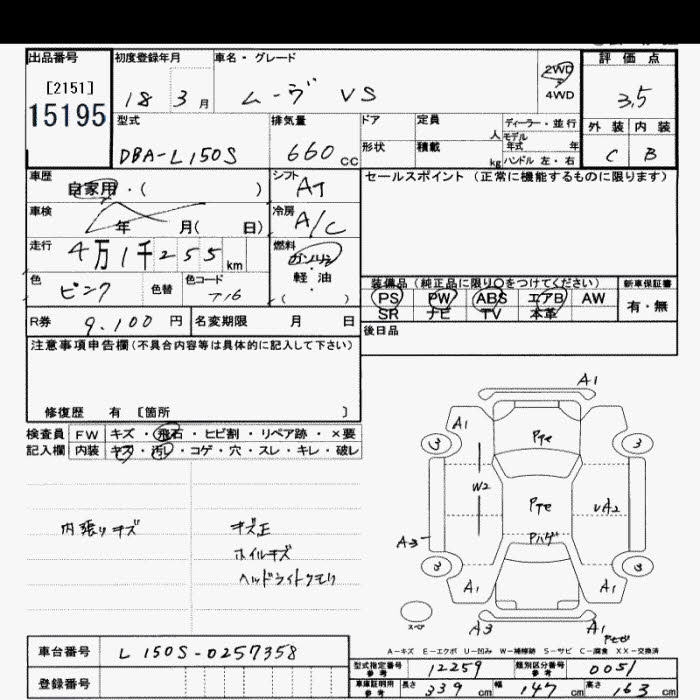 出品番号 初度登録年月 車名・グレード 2WD 評価点
[2151] 18 3月 ムーヴ VS 4WD 3,5
15195 型式 排気量 ドア 定員 人 ディーラー・並行 外装 内装
モデル年式 年
DBA-L150S 660cc 形状 積載 kg ハンドル 左・右 C B
車歴 自家用・( ) シフト AT セールスポイント(正常に機能するものに限ります)
車検 年 月( 日) 冷房 A/C
走行 4万1千255km 燃料 ガソリン
軽油
色 ピンク 色替 色コード T16 ( )
装備品(純正品に限り○をつけてください) 新車保証書
PS PW ABS エアB AW 有・無
SR ナビ TV 本革
R券 9.100円 名変期限 月 日 後日品
注意事項申告欄(不具合内容等は具体的に記入して下さい)
修復歴 有 [箇所 ]
検査員 FW キズ・飛石・ヒビ割・リペア跡・×要
記入欄 内装 キズ・汚レ・コゲ・穴・スレ・キレ・破レ
A1
A1 Pte
3 3
W2 Pte A2
A3 Pバゲ
3 3
A1 A1
スペア A3 A1
内張りキズ キズ正
ホイルキズ
ヘッドライトクモリ
A-キズ E-エクボ U-凹み W-補修跡 S-サビ C-腐食 XX-交換済
車台番号 L150S-0257358
型式指定番号 参考 12259 類別区分番号 参考 0051
登録番号
車庫証明用 参考 長さ 339cm 幅 147cm 高さ 163cm